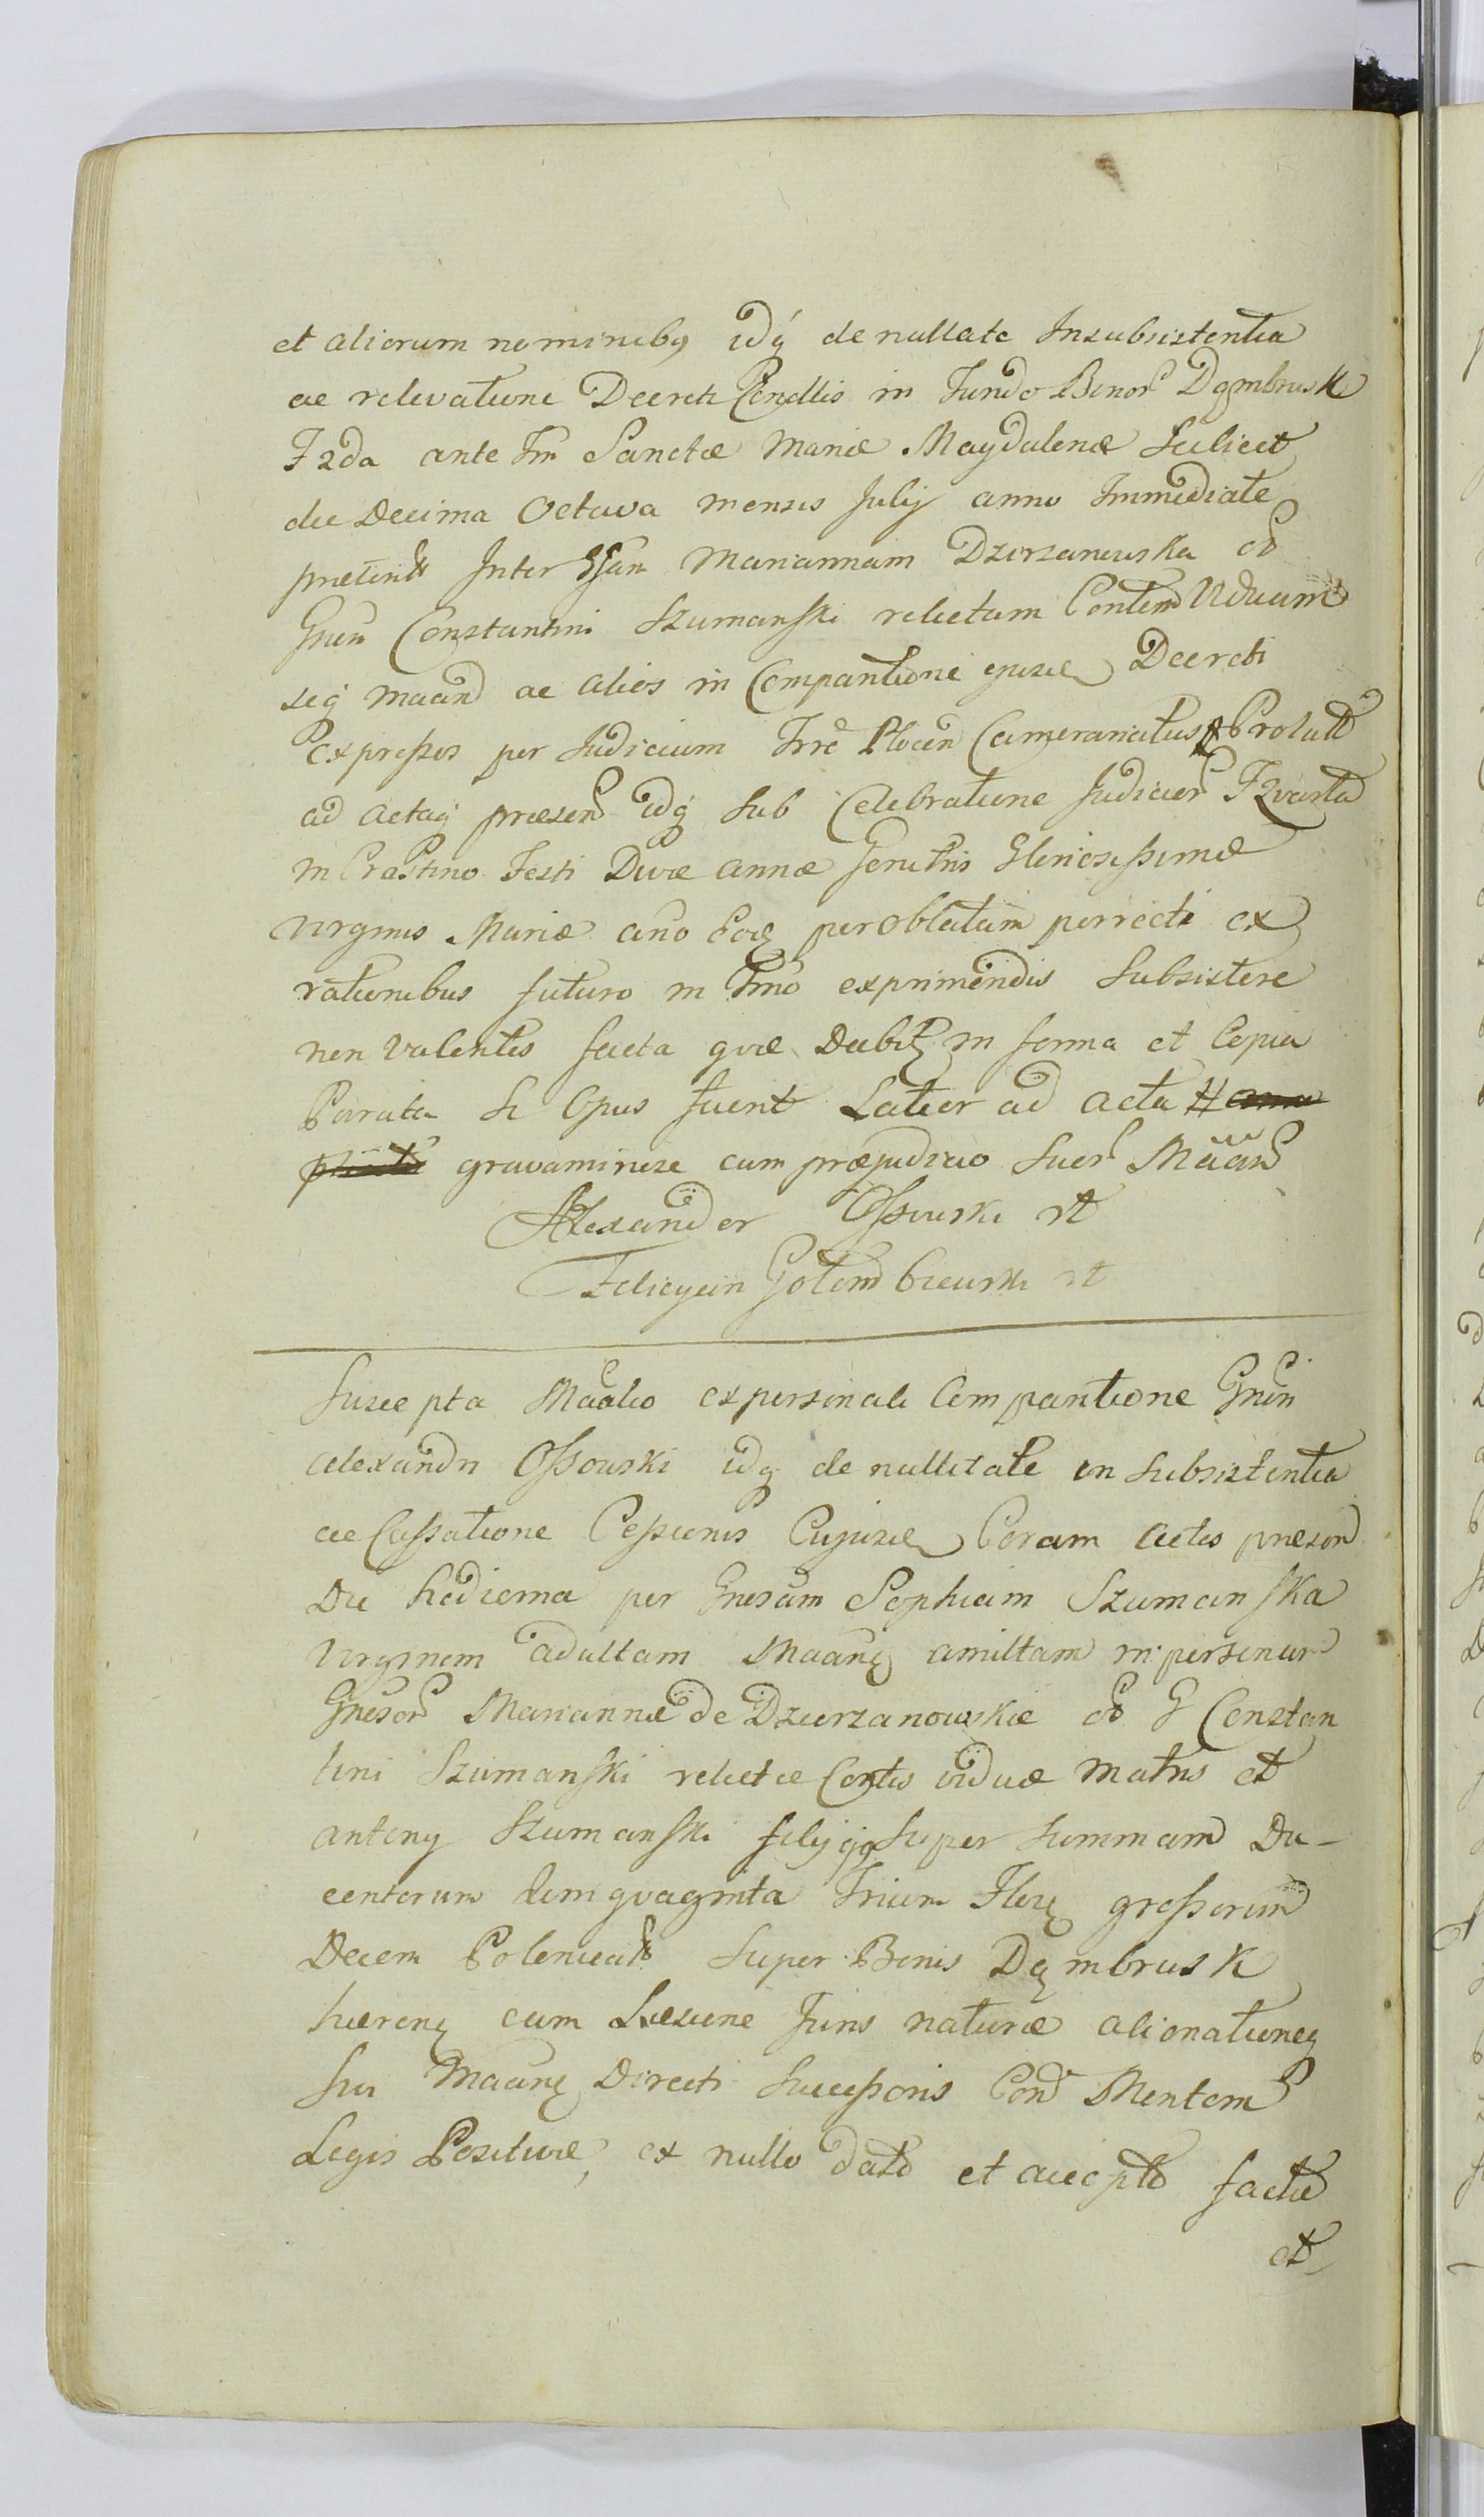 et aliorum nominibq idq de nullate Insubsistentia
ac relevatione Decreti Condllis in Fundo Bonor Dąmbrusk
F2da ante Fm Sanctæ Mariæ Magdalenæ Scilicet
die Decima Octava mensis Julij anno Immediate
præterit Inter Gsam Mariannam Dzierzanowska ob
Gnen Constantini Szumanski relictam Content Viduam
seq Maand ac alios in Compantione ejusd Decreti
expressos per Judicium Trre Plocen Camerariatus Prolatt
ad actaq præsen idq Sub Celebratione Judicior F2varta
in Crastino Festi Divæ annæ Genitris Gloriosissimæ
Virginis Mariæ ano Eoq per Oblatam porrecti ex
rationibus futuro in Tmo exprimendis Subsistere
non Valentis facta quæ Debit in forma et Copia
Parata Si Opus fuerit Latior ad acta
gravaminose cum præjudicio Suor Maan
Alexander Ossowski
Felicyan Golembiewski
Suscepta Maalio ex personali Compantione Gnen
alexandri Ossowski idq de nullitate in Subsistentia
ac Cassatione Cessionis Cujusd Coram actis præsen
Die hodierna per Gnesam Sophiam Szumanska
Virginem adultam Maanq amittam in personam
Gnesor Mariannæ de Dzierzanowskie ob G Constan
tini Szumanski relictæ Contis viduæ Matris et
antony Szumanski filij Super Summam Du-
centorum Quinquaginta Trium Flor grossorum
Decem Polonicat Super Bonis Dąmbrusk
hæren cum Læsione Juris naturæ alienationeq
sui Maanq Directi Successoris Con Mentem
Legis Positivæ, ex nullo dato et accepto factæ
et